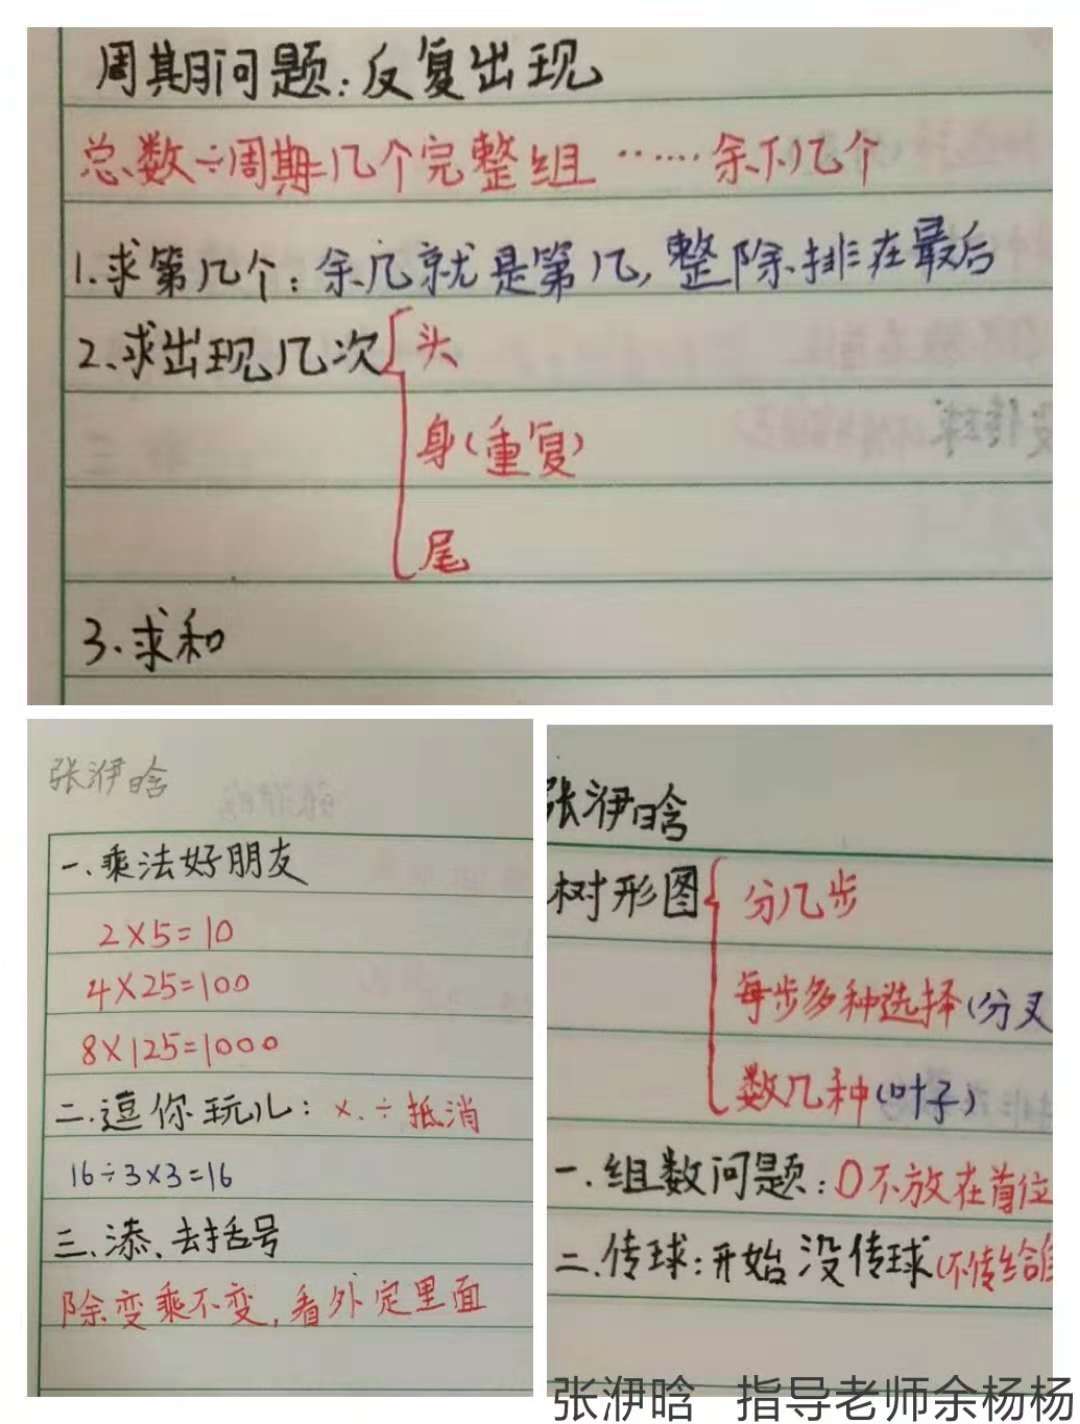 周期问题:反复出现
总数÷周期=几个完整组 …… 余下几个
1.求第几个:余几就是第几,整除排在最后
2.求出现几次{头
身(重复)
尾
3.求和
张洢晗
一.乘法好朋友
2×5=10
4×25=100
8×125=1000
二.逗你玩儿:×.÷抵消
16÷3×3=16
三、添、去括号
除变乘不变,看外定里面
张洢晗
树形图{分几步
每步多种选择(分叉
数几种(叶子)
一.组数问题:0不放在首位
二.传球:开始没传球(不传给自
张洢晗 指导老师余杨杨